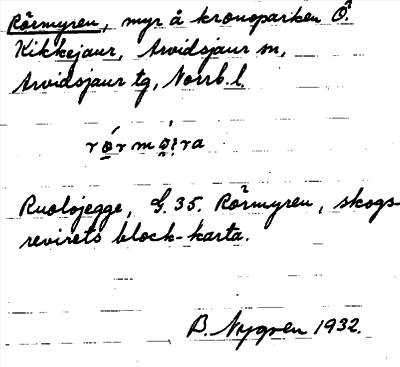 Rörmyren, myr å kronoparken Ö.
Kikkejaur, Arvidsjaur sn,
Arvidsjaur tg, Norrb. l.
Ruolojegge, G. 35. Rörmyren, skogs-
revirets block-karta.
B. Nygren 1932.